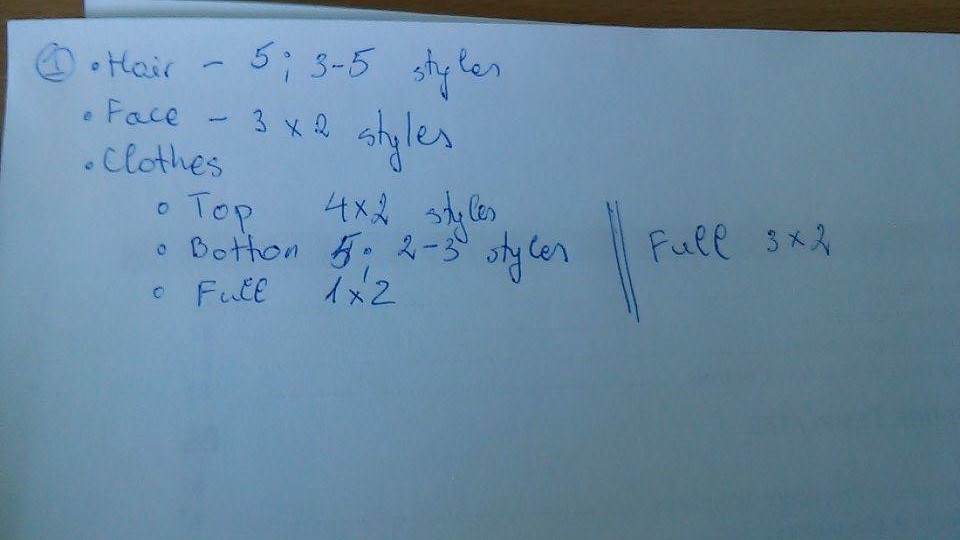 ① • Hair - 5; 3-5 styles
• Face - 3 x 2 styles
• Clothes
o Top 4x2 styles
o Botton 5; 2-3 styles || Full 3x2
o Full 1x2